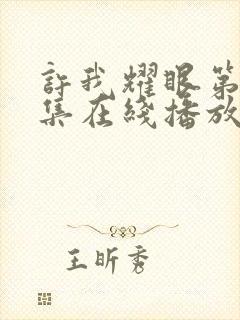 許我耀眼第
集在綫播放
王昕秀